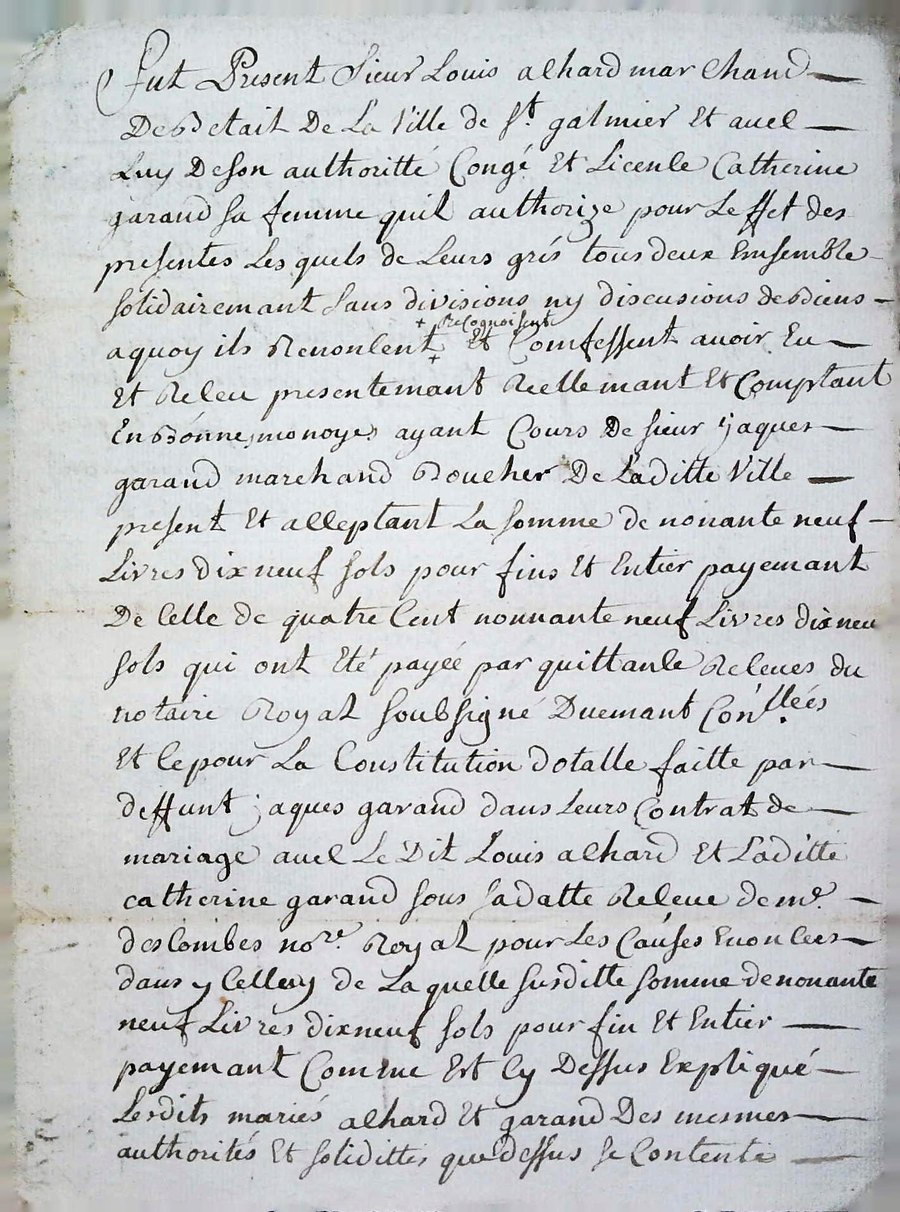 Fut Present Sieur Louis alhard marchand
De Betail De La Ville de St. galmier Et avec
Luy De son authoritté Congé Et Licence Catherine
garand sa femme quil authorize pour Leffet des
presentes Les quels de Leurs grés tous deux Ensemble
solidairemant sans divisions ny discusions de Biens
aquoy ils Renoncent + Et Comfessent avoir Eu
+ Recognoisent
Et Receu presentemant Reellemant Et Comptant
En Bonne monoyes ayant Cours De sieur jaques
garand marchand Boucher De Laditte Ville
present Et acceptant La somme de nonante neuf
Livres dix neuf sols pour fins Et Entier payemant
De Celle de quatre Cent nonnante neuf Livres dix neu
sols qui ont Eté payée par quittance Receues du
notaire Royal soubsigné Duemant Con.llées
Et Ce pour La Constitution dotalle faitte par
deffunt jaques garand dans Leurs Contrat de
mariage avec Le Dit Louis alhard Et Laditte
catherine garand sous sa datte Receue de me.
descombes nore. Royal pour Les Causes Enoncées
dans y Celluy de La quelle susditte somme de nonante
neuf Livres dix neuf sols pour fin Et Entier
payemant Comme Est Cy Dessus Expliqué
Lesdits mariés alhard Et garand Des mesmes
authorités Et solidittés que dessus se Contente